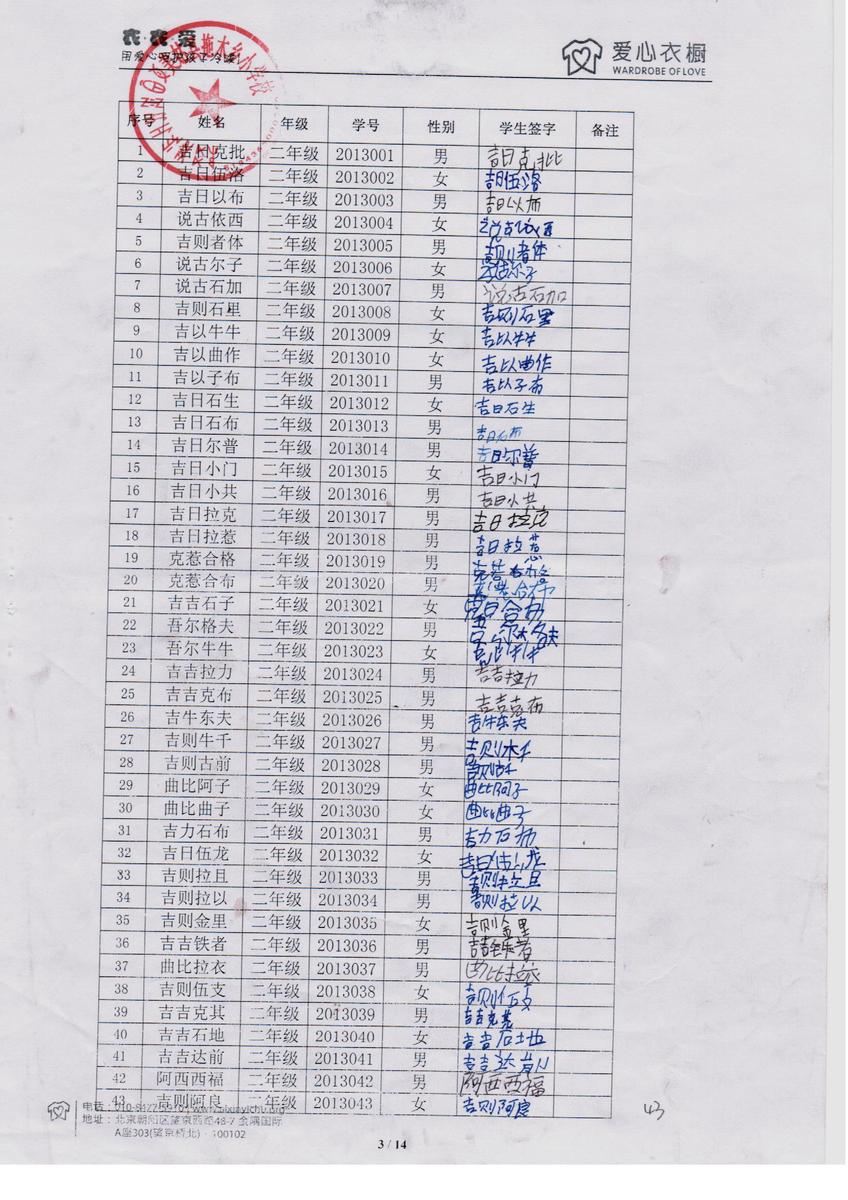 衣·衣爱
用爱心
爱心衣橱
WARDROBE OF LOVE
拖木乡小学校
序号 姓名 年级 学号 性别 学生签字 备注
1 吉日克批 二年级 2013001 男 吉日克批
2 吉日伍洛 二年级 2013002 女 吉日伍洛
3 吉日以布 二年级 2013003 男 吉日以布
4 说古依西 二年级 2013004 女 说古依西
5 吉则者体 二年级 2013005 男 吉则者体
6 说古尔子 二年级 2013006 女 说古尔子
7 说古石加 二年级 2013007 男 说古石加
8 吉则石里 二年级 2013008 女 吉则石里
9 吉以牛牛 二年级 2013009 女 吉以牛牛
10 吉以曲作 二年级 2013010 女 吉以曲作
11 吉以子布 二年级 2013011 男 吉以子布
12 吉日石生 二年级 2013012 女 吉日石生
13 吉日石布 二年级 2013013 男 吉日石布
14 吉日尔普 二年级 2013014 男 吉日尔普
15 吉日小门 二年级 2013015 女 吉日小门
16 吉日小共 二年级 2013016 男 吉日小共
17 吉日拉克 二年级 2013017 男 吉日拉克
18 吉日拉惹 二年级 2013018 男 吉日拉惹
19 克惹合格 二年级 2013019 男 克惹合格
20 克惹合布 二年级 2013020 男 克惹合布
21 吉吉石子 二年级 2013021 女
22 吾尔格夫 二年级 2013022 男
23 吾尔牛牛 二年级 2013023 女
24 吉吉拉力 二年级 2013024 男 吉吉拉力
25 吉吉克布 二年级 2013025 男 吉吉克布
26 吉牛东夫 二年级 2013026 男 吉牛东夫
27 吉则牛千 二年级 2013027 男
28 吉则古前 二年级 2013028 男
29 曲比阿子 二年级 2013029 女 曲比阿子
30 曲比曲子 二年级 2013030 女 曲比曲子
31 吉力石布 二年级 2013031 男 吉力石布
32 吉日伍龙 二年级 2013032 女 吉日伍龙
33 吉则拉且 二年级 2013033 男 吉则拉且
34 吉则拉以 二年级 2013034 男 吉则拉以
35 吉则金里 二年级 2013035 女 吉则金里
36 吉吉铁者 二年级 2013036 男 吉吉铁者
37 曲比拉衣 二年级 2013037 男 曲比拉衣
38 吉则伍支 二年级 2013038 女 吉则伍支
39 吉吉克其 二年级 2013039 男 吉吉克其
40 吉吉石地 二年级 2013040 女 吉吉石地
41 吉吉达前 二年级 2013041 男 吉吉达前
42 阿西西福 二年级 2013042 男 阿西西福
43 吉则阿良 二年级 2013043 女 吉则阿良
43
电话:
地址: 北京朝阳区望京西路48-7 金隅国际
A座303(望京桥北) · 100102
3 / 14